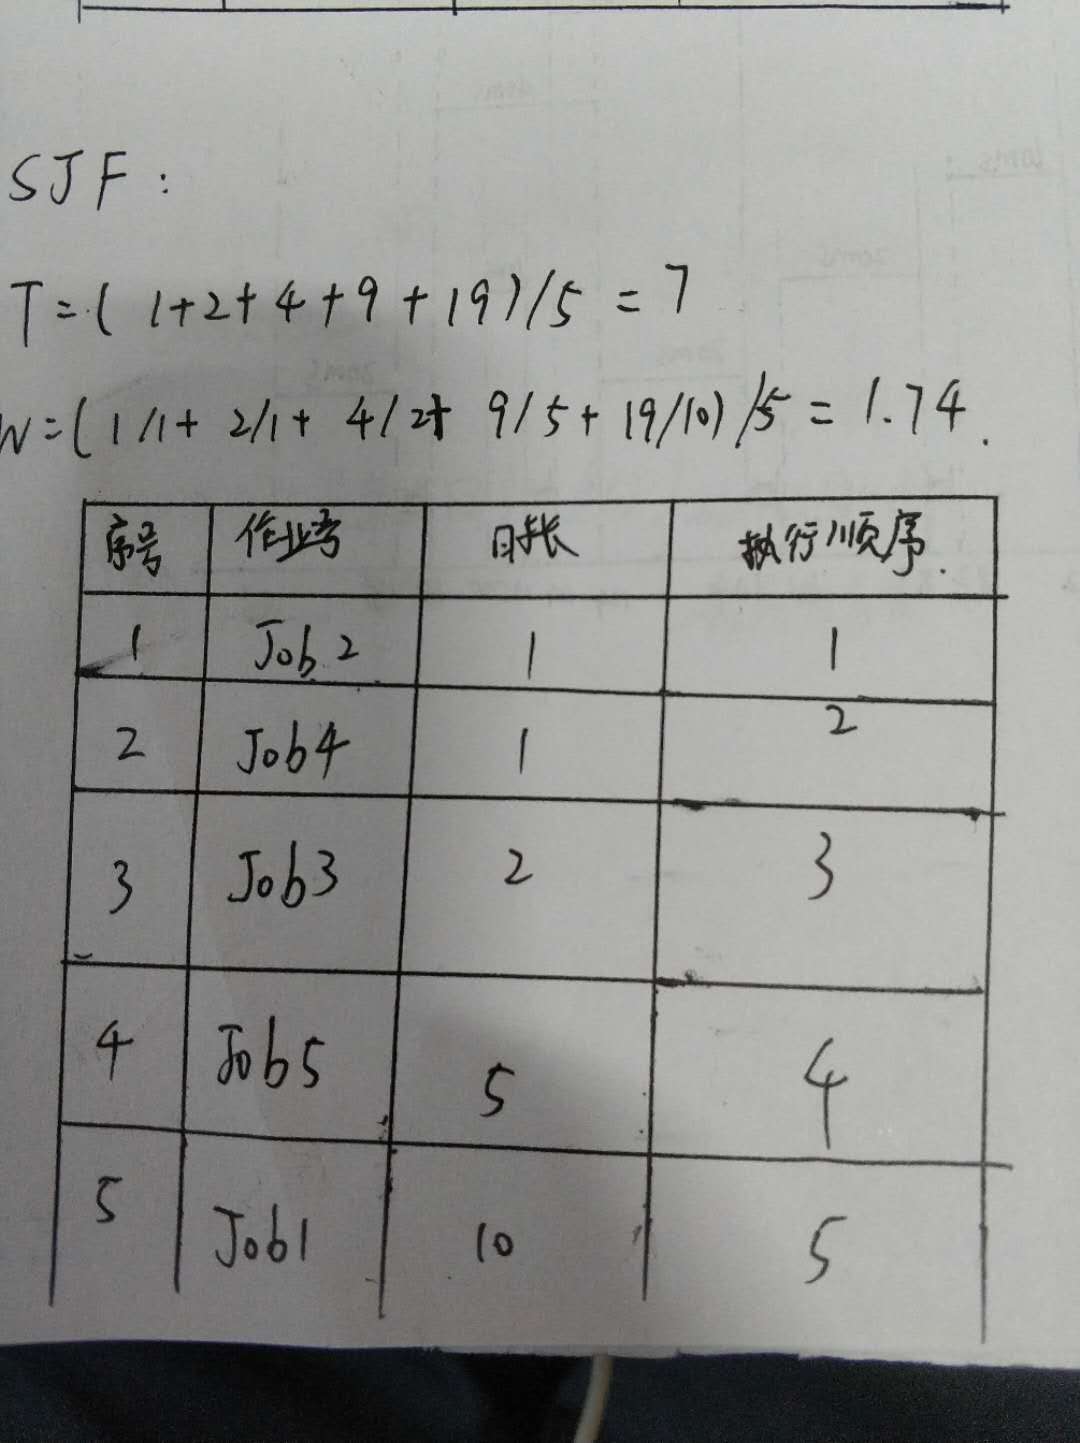 SJF:
T=(1+2+4+9+19)/5=7
W=(1/1+2/1+4/2+9/5+19/10)/5=1.74.
序号 作业号 时长 执行顺序.
1 Job2 1 1
2 Job4 1 2
3 Job3 2 3
4 Job5 5 4
5 Job1 10 5